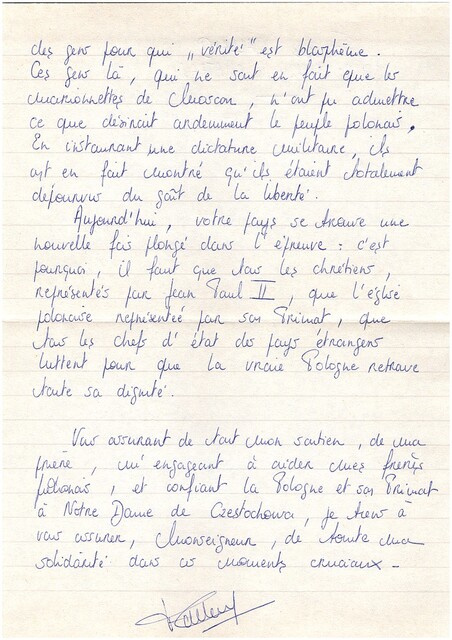 des gens pour qui „vérité" est blasphème.
Ces gens là, qui ne sont en fait que les
marionnettes de Moscou, n'ont pu admettre
ce que désirait ardemment le peuple polonais.
En instaurant une dictature militaire, ils
ont en fait montré qu'ils étaient totalement
dépourvus du goût de la liberté.
Aujourd'hui, votre pays se trouve une
nouvelle fois plongé dans l'épreuve : c'est
pourquoi, il faut que tous les chrétiens,
représentés par Jean Paul II, que l'église
polonaise représentée par son Primat, que
tous les chefs d'état des pays étrangers
luttent pour que la vraie Pologne retrouve
toute sa dignité.
Vous assurant de tout mon soutien, de ma
prière, m'engageant à aider mes frères
polonais, et confiant la Pologne et son Primat
à Notre Dame de Czestochowa, je tiens à
vous assurer, Monseigneur, de toute ma
solidarité dans ces moments cruciaux -